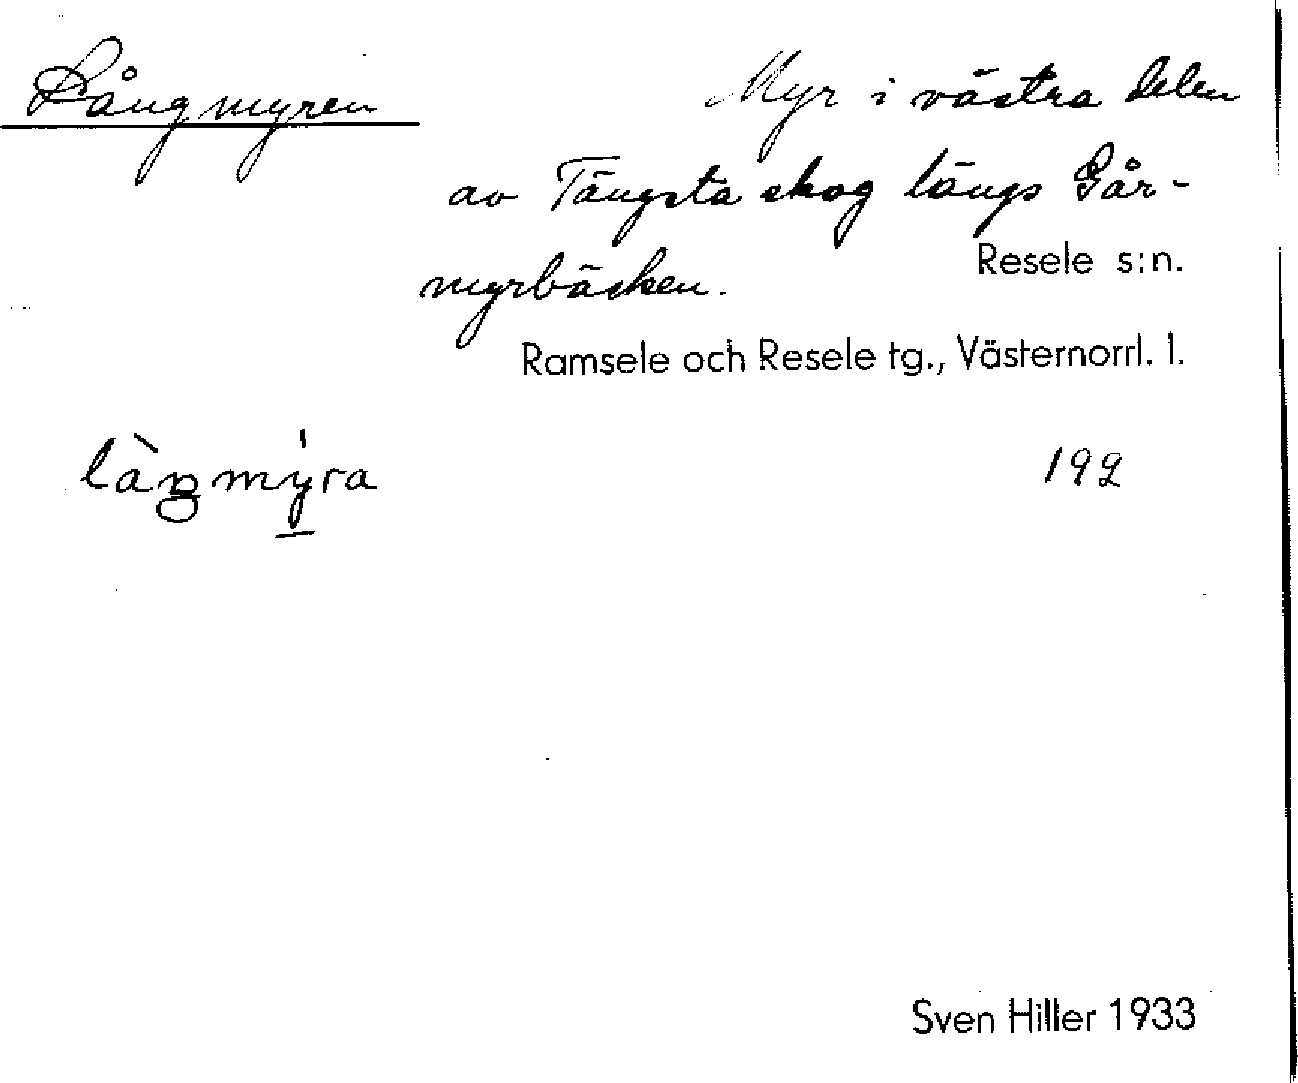 Långmyren
Myr i västra delen
av Tängsta skog längs Går-
myrbäcken.
Resele s:n.
Ramsele och Resele tg., Västernorrl. l.
192
Sven Hiller 1933